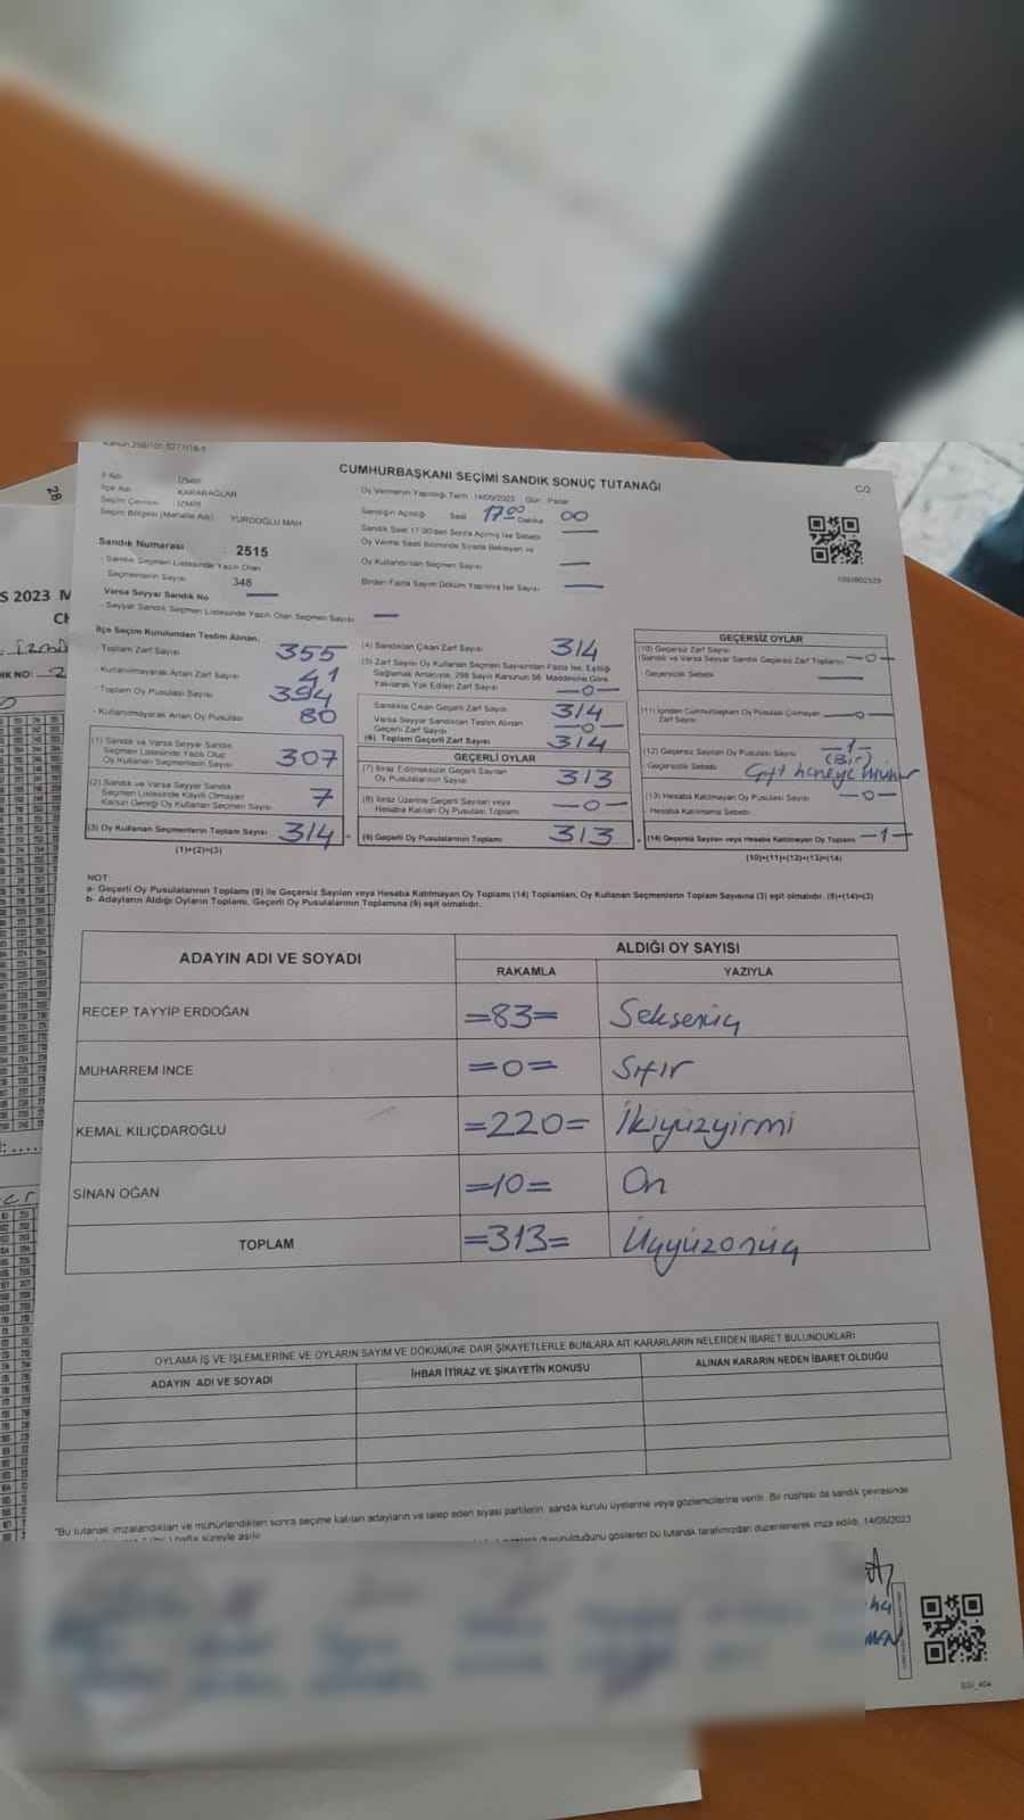 28
S 2023 M
CUMHURBAŞKANI SEÇİMİ SANDIK SONUÇ TUTANAĞI
C/2
İli Adı İZMİR
İlçe Adı KARABAĞLAR
Seçim Çevresi İZMİR
Seçim Bölgesi (Mahalle Adı) YURDOĞLU MAH
Sandık Numarası : 2515
- Sandık Seçmen Listesinde Yazılı Olan
Seçmenlerin Sayısı 348
Varsa Seyyar Sandık No —
- Seyyar Sandık Seçmen Listesinde Yazılı Olan Seçmen Sayısı —
Oy Vermenin Yapıldığı Tarih 14/05/2023 Gün Pazar
Sandığın Açıldığı Saat 17 00 Dakika 00
Oy Kullandırılan Seçmen Sayısı —
Birden Fazla Sayım Döküm Yapılmış İse Sayısı —
İlçe Seçim Kurulundan Teslim Alınan,
Toplam Zarf Sayısı 355
- Kullanılmayarak Artan Zarf Sayısı 41
- Toplam Oy Pusulası Sayısı 394
- Kullanılmayarak Artan Oy Pusulası 80
(1) Sandık ve Varsa Seyyar Sandık
Seçmen Listesinde Yazılı Olup
Oy Kullanan Seçmenlerin Sayısı 307
(2) Sandık ve Varsa Seyyar Sandık
Seçmen Listesinde Kayıtlı Olmayan
Kanun Gereği Oy Kullanan Seçmen Sayısı 7
(3) Oy Kullanan Seçmenlerin Toplam Sayısı 314
(1)+(2)=(3)
(4) Sandıktan Çıkan Zarf Sayısı 314
(5) Zarf Sayısı Oy Kullanan Seçmen Sayısından Fazla İse, Eşitliği
Sağlamak Amacıyla, 298 Sayılı Kanunun 98. Maddesine Göre
Yakılarak Yok Edilen Zarf Sayısı —0—
Sandıkta Çıkan Geçerli Zarf Sayısı 314
Varsa Seyyar Sandıktan Teslim Alınan
Geçerli Zarf Sayısı —0—
(6) Toplam Geçerli Zarf Sayısı 314
GEÇERLİ OYLAR
(7) İtiraz Edilmeksizin Geçerli Sayılan
Oy Pusulalarının Sayısı 313
(8) İtiraz Üzerine Geçerli Sayılan veya
Hesaba Katılan Oy Pusulası Toplamı —0—
(9) Geçerli Oy Pusulalarının Toplamı 313
GEÇERSİZ OYLAR
(10) Geçersiz Zarf Sayısı
(Sandık ve Varsa Seyyar Sandık Geçersiz Zarf Toplamı) —0—
Geçersizlik Sebebi —
(11) İçinden Cumhurbaşkanı Oy Pusulası Çıkmayan
Zarf Sayısı —0—
(12) Geçersiz Sayılan Oy Pusulası Sayısı —1—
(Bir)
Geçersizlik Sebebi Çift haneye mühür
(13) Hesaba Katılmayan Oy Pusulası Sayısı —0—
Hesaba Katılmama Sebebi
(14) Geçersiz Sayılan veya Hesaba Katılmayan Oy Toplamı —1—
(10)+(11)+(12)+(13)=(14)
NOT:
a- Geçerli Oy Pusulalarının Toplamı (9) ile Geçersiz Sayılan veya Hesaba Katılmayan Oy Toplamı (14) Toplamları, Oy Kullanan Seçmenlerin Toplam Sayısına (3) eşit olmalıdır. (9)+(14)=(3)
b- Adayların Aldığı Oyların Toplamı, Geçerli Oy Pusulalarının Toplamına (9) eşit olmalıdır.
ADAYIN ADI VE SOYADI
ALDIĞI OY SAYISI
RAKAMLA YAZIYLA
RECEP TAYYİP ERDOĞAN =83= Seksenüç
MUHARREM İNCE =0= Sıfır
KEMAL KILIÇDAROĞLU =220= İkiyüzyirmi
SİNAN OĞAN =10= On
TOPLAM =313= Üçyüzonüç
OYLAMA İŞ VE İŞLEMLERİNE VE OYLARIN SAYIM VE DÖKÜMÜNE DAİR ŞİKAYETLERLE BUNLARA AİT KARARLARIN NELERDEN İBARET BULUNDUKLARI
ADAYIN ADI VE SOYADI İHBAR İTİRAZ VE ŞİKAYETİN KONUSU ALINAN KARARIN NEDEN İBARET OLDUĞU
"Bu tutanak imzalandıktan ve mühürlendikten sonra seçime katılan adayların ve talep eden siyasi partilerin, sandık kurulu üyelerine veya gözlemcilerine verilir. Bir nüshası da sandık çevresinde
hafta süreyle asılır duyurulduğunu gösteren bu tutanak tarafımızdan düzenlenerek imza edildi. 14/05/2023